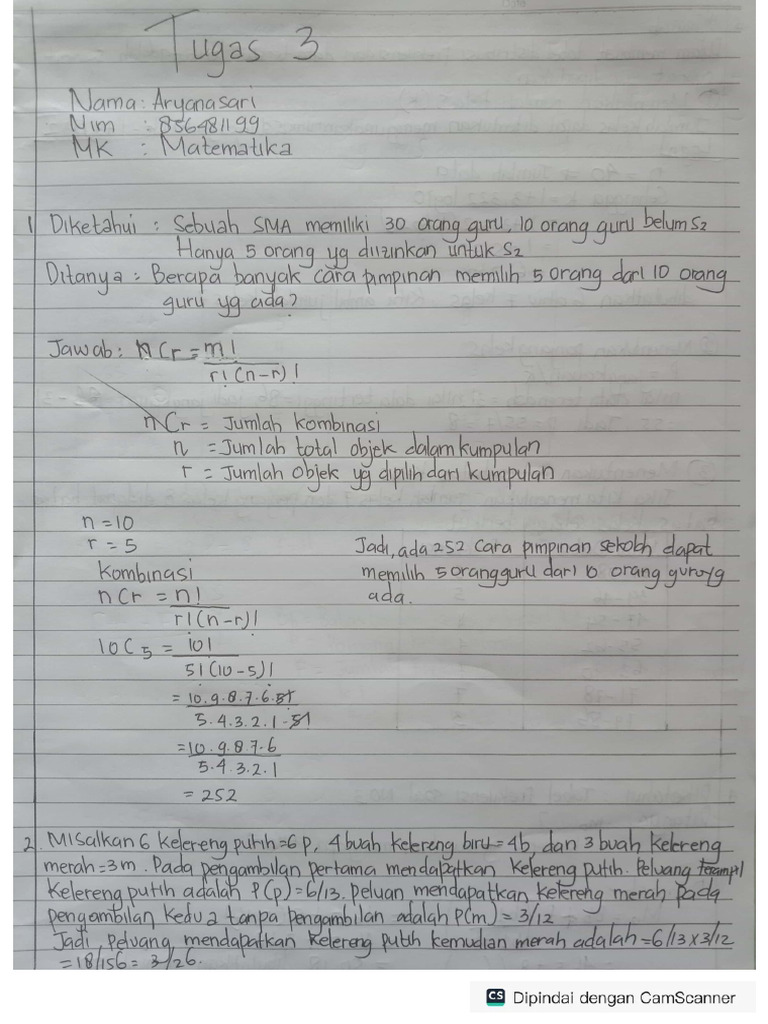 Tugas 3
Nama : Aryanasari
Nim : 856481199
MK : Matematika
1 Diketahui : Sebuah SMA memiliki 30 orang guru, 10 orang guru belum S2
Hanya 5 orang yg diizinkan untuk S2
Ditanya : Berapa banyak cara pimpinan memilih 5 orang dari 10 orang
guru yg ada?
Jawab : n C r = m!
r! (n-r)!
nCr = Jumlah kombinasi
n = Jumlah total objek dalam kumpulan
r = Jumlah objek yg dipilih dari kumpulan
n = 10
r = 5
Kombinasi
nCr = n!
r! (n-r)!
10C5 = 10!
5! (10-5)!
= 10.9.8.7.6.5!
5.4.3.2.1.5!
= 10.9.8.7.6
5.4.3.2.1
= 252
Jadi, ada 252 cara pimpinan sekolah dapat
memilih 5 orang guru dari 10 orang guru yg
ada.
2. Misalkan 6 kelereng putih = 6p, 4 buah kelereng biru = 4b, dan 3 buah kelereng
merah = 3m. Pada pengambilan pertama mendapatkan kelereng putih. Peluang terampl
kelereng putih adalah P(p) = 6/13. Peluan mendapatkan kelereng merah pada
pengambilan kedua tanpa pengambilan adalah P(m) = 3/12
Jadi, peluang mendapatkan kelereng putih kemudian merah adalah = 6/13 x 3/12
= 18/156 = 3/26.
CS Dipindai dengan CamScanner